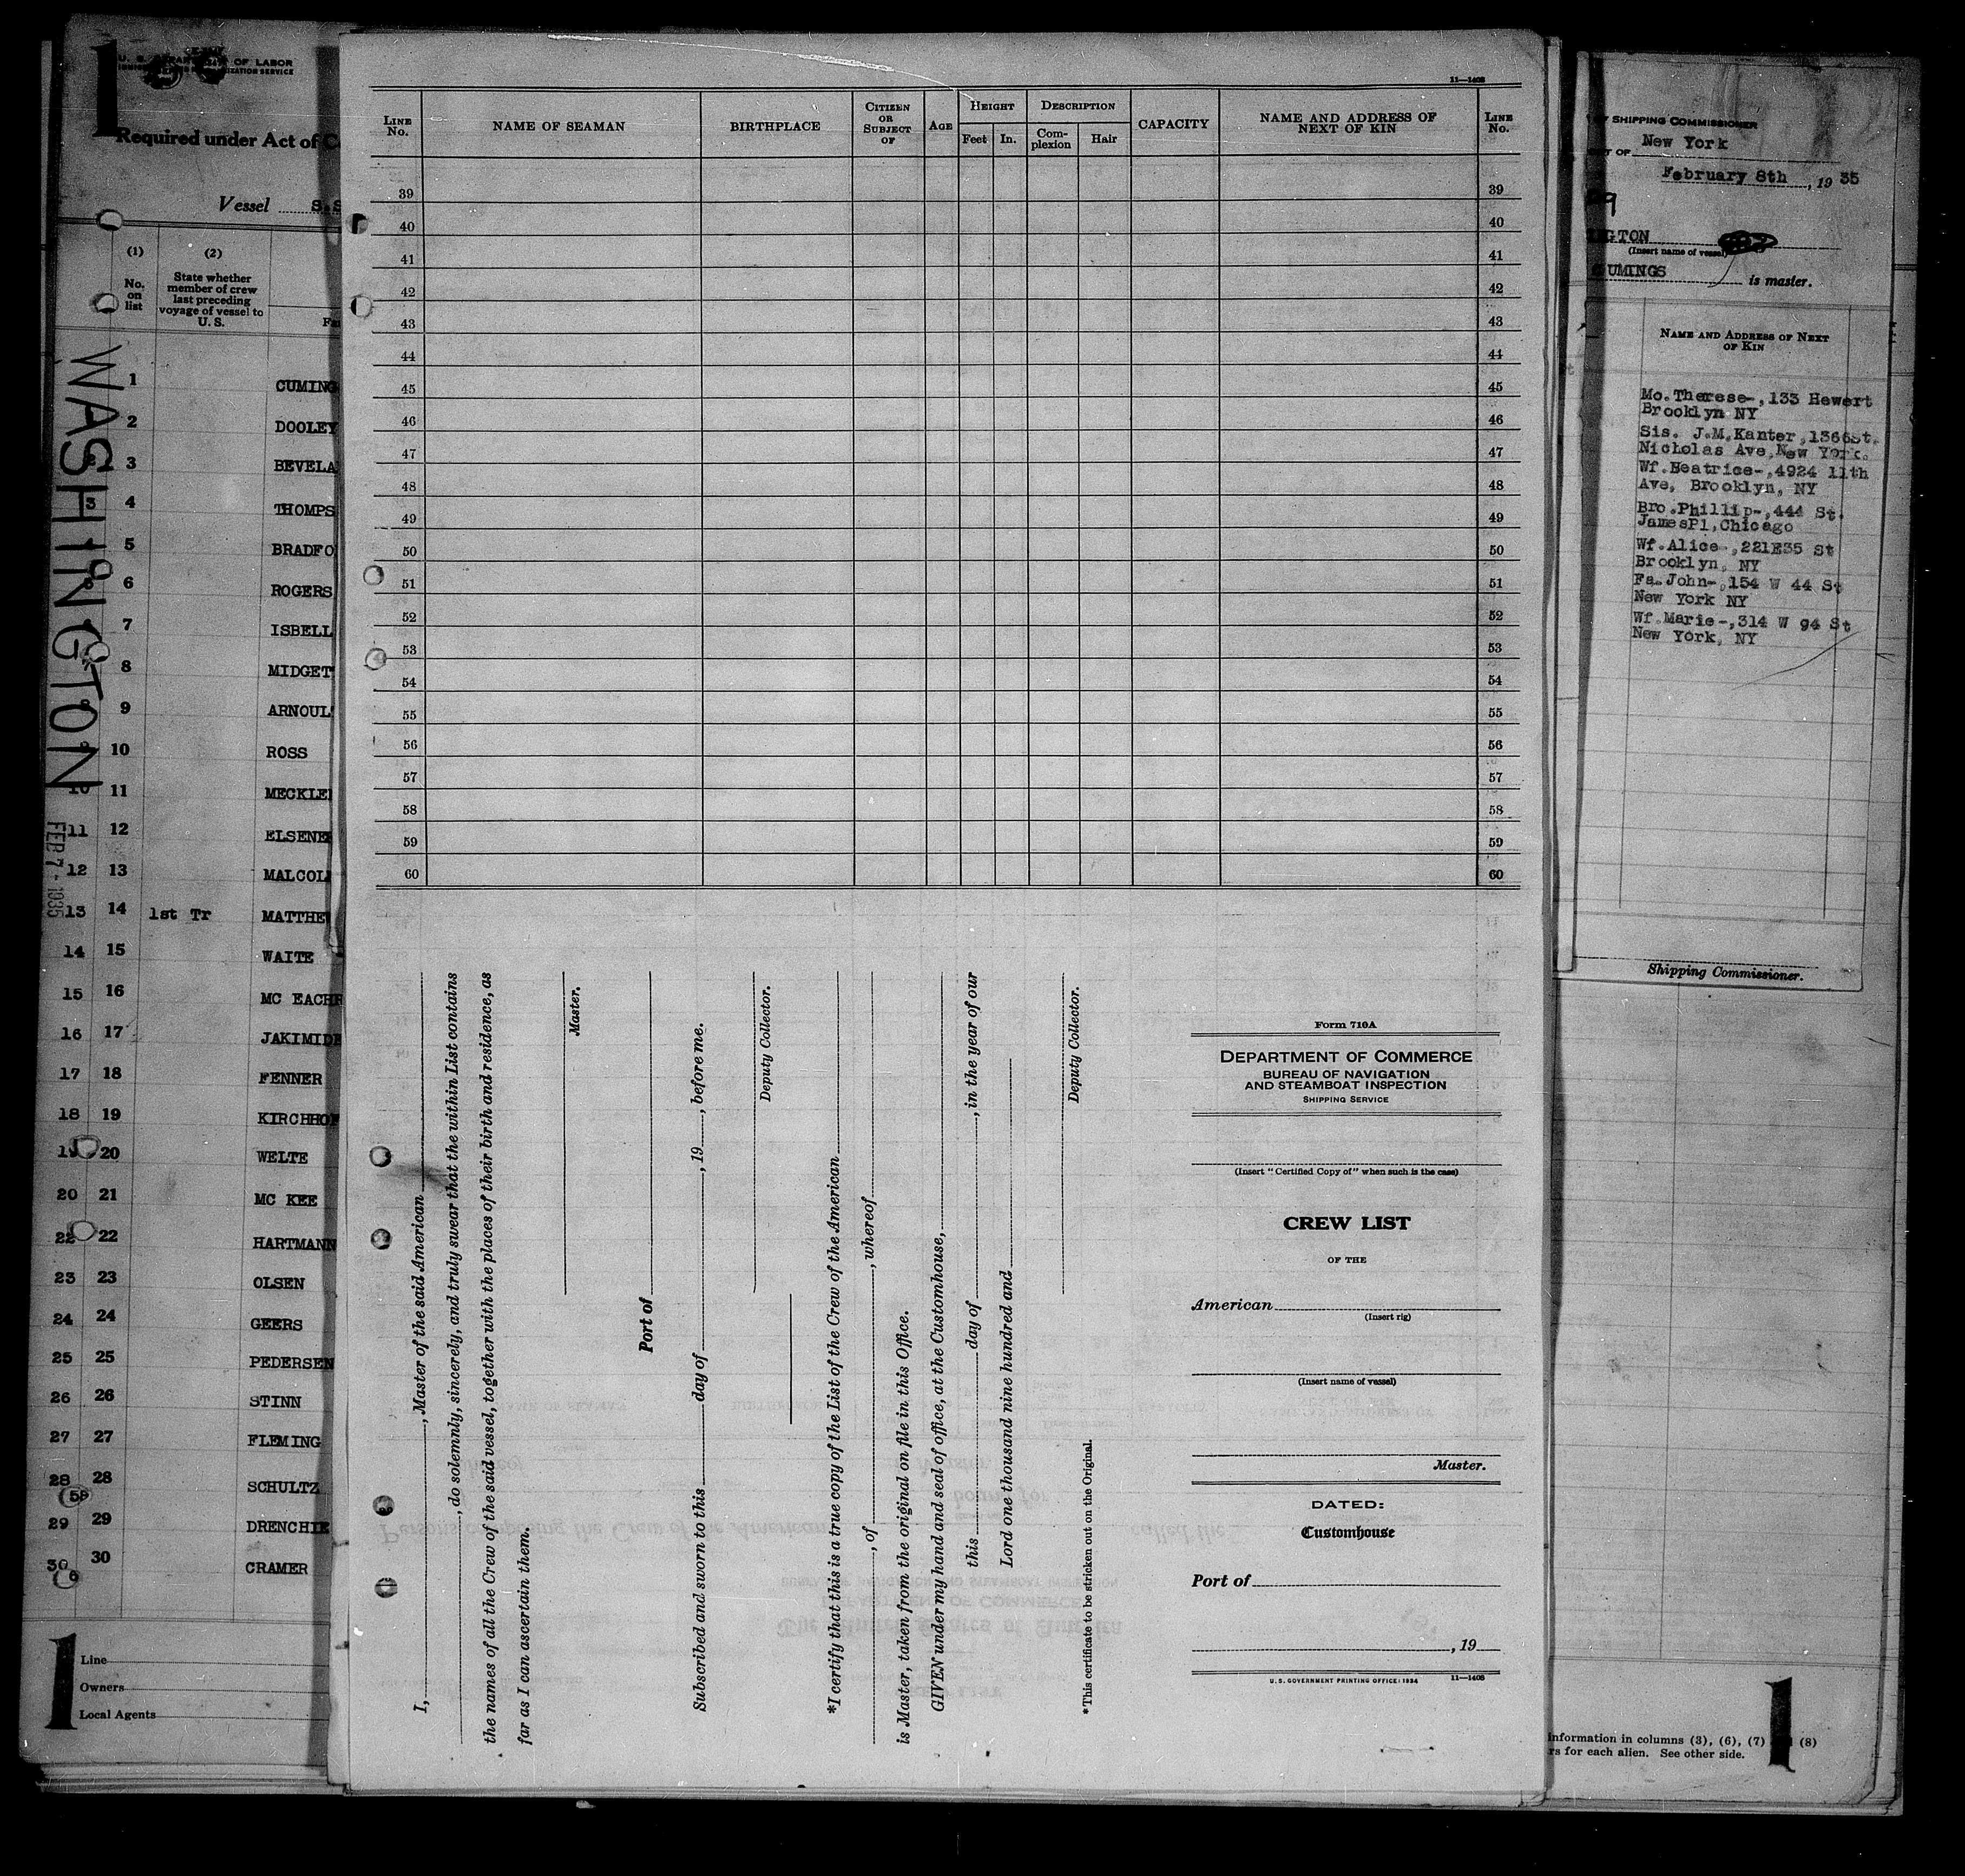 1
U. S. DEPARTMENT OF LABOR
Required under Act of
Vessel S.S
(1)
No. on list
(2)
State whether member of crew last preceding voyage of vessel to U. S.
WASHINGTON
FEB 7 - 1935
1 CUMING
2 DOOLEY
3 BEVELA
3 4 THOMPS
5 BRADFO
6 ROGERS
7 ISBELL
8 MIDGET
9 ARNOUL
10 ROSS
10 11 MECKLE
11 12 ELSENE
12 13 MALCOL
13 14 1st Tr MATTHE
14 15 WAITE
15 16 MC EACH
16 17 JAKIMID
17 18 FENNER
18 19 KIRCHHO
19 20 WELTE
20 21 MC KEE
22 22 HARTMANN
23 23 OLSEN
24 24 GEERS
25 25 PEDERSEN
26 26 STINN
27 27 FLEMING
28 28 SCHULTZ
29 29 DRENCHIE
30 30 CRAMER
1
Line
Owners
Local Agents
11—1408
LINE No.
NAME OF SEAMAN
BIRTHPLACE
CITIZEN OR SUBJECT OF
AGE
HEIGHT
Feet In.
DESCRIPTION
Complexion Hair
CAPACITY
NAME AND ADDRESS OF NEXT OF KIN
LINE No.
39 39
40 40
41 41
42 42
43 43
44 44
45 45
46 46
47 47
48 48
49 49
50 50
51 51
52 52
53 53
54 54
55 55
56 56
57 57
58 58
59 59
60 60
I, , Master of the said American
, do solemnly, sincerely, and truly swear that the within List contains
the names of all the Crew of the said vessel, together with the places of their birth and residence, as
far as I can ascertain them.
Master.
Port of
Subscribed and sworn to this day of , 19 , before me.
Deputy Collector.
*I certify that this is a true copy of the List of the Crew of the American
, of , whereof
is Master, taken from the original on file in this Office.
GIVEN under my hand and seal of office, at the Customhouse,
this day of , in the year of our
Lord one thousand nine hundred and
Deputy Collector.
*This certificate to be stricken out on the Original.
Form 710A
DEPARTMENT OF COMMERCE
BUREAU OF NAVIGATION
AND STEAMBOAT INSPECTION
SHIPPING SERVICE
(Insert "Certified Copy of" when such is the case)
CREW LIST
OF THE
American
(Insert rig)
(Insert name of vessel)
Master.
DATED:
Customhouse
Port of
, 19
U. S. GOVERNMENT PRINTING OFFICE: 1934 11—1408
OF SHIPPING COMMISSIONER
New York
February 8th , 19 35
NGTON
(Insert name of vessel)
CUMINGS is master.
NAME AND ADDRESS OF NEXT OF KIN
Mo. Therese-, 133 Hewert
Brooklyn NY
Sis. J.M.Kanter, 1366St.
Nicholas Ave, New York.
Wf. Beatrice-, 4924 11th
Ave, Brooklyn, NY
Bro. Phillip-, 444 St.
JamesPl, Chicago
Wf. Alice-, 221E35 St
Brooklyn, NY
Fa. John-, 154 W 44 St
New York NY
Wf. Marie-, 314 W 94 St
New York, NY
Shipping Commissioner.
information in columns (3), (6), (7) (8)
rs for each alien. See other side.
1